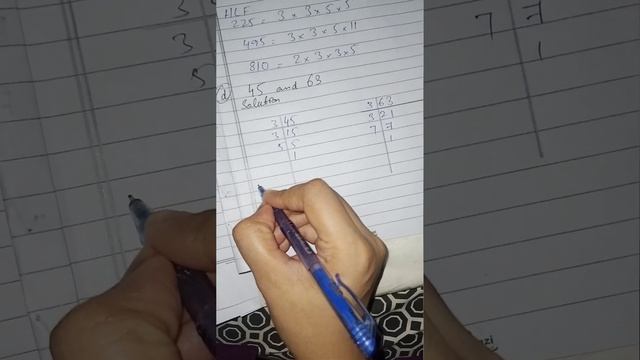 HCF
225 = 3 × 3 × 5 × 5
495 = 3 × 3 × 5 × 11
810 = 2 × 3 × 3 × 5
(d) 45 and 63
Solution
3 | 45
3 | 15
5 | 5
1
3 | 63
3 | 21
7 | 7
1